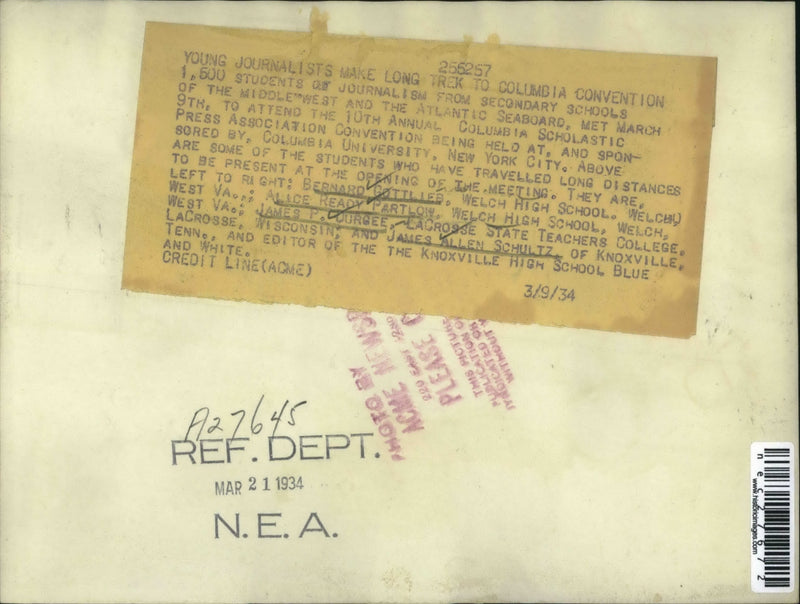 256257
YOUNG JOURNALISTS MAKE LONG TREK TO COLUMBIA CONVENTION
1,500 STUDENTS OF JOURNALISM FROM SECONDARY SCHOOLS
OF THE MIDDLE WEST AND THE ATLANTIC SEABOARD, MET MARCH
9TH, TO ATTEND THE 10TH ANNUAL COLUMBIA SCHOLASTIC
PRESS ASSOCIATION CONVENTION BEING HELD AT, AND SPON-
SORED BY, COLUMBIA UNIVERSITY, NEW YORK CITY. ABOVE
ARE SOME OF THE STUDENTS WHO HAVE TRAVELLED LONG DISTANCES
TO BE PRESENT AT THE OPENING OF THE MEETING. THEY ARE,
LEFT TO RIGHT: BERNARD GOTTLIEB, WELCH HIGH SCHOOL, WELCH,
WEST VA.,; ALICE READY PARTLOW, WELCH HIGH SCHOOL, WELCH,
WEST VA.,; JAMES P. DURGEE, LACROSSE STATE TEACHERS COLLEGE,
LACROSSE, WISCONSIN, AND JAMES ALLEN SCHULTZ, OF KNOXVILLE,
TENN., AND EDITOR OF THE THE KNOXVILLE HIGH SCHOOL BLUE
AND WHITE.
CREDIT LINE(ACME)
3/9/34
PHOTO BY
ACME NEWSP
220 EAST 42ND
PLEASE C
THIS PICTURE
PUBLICATION O
SYNDICATED OR
WITHOUT
A27645
REF. DEPT.
MAR 21 1934
N.E.A.
nec27672
www.historicimages.com